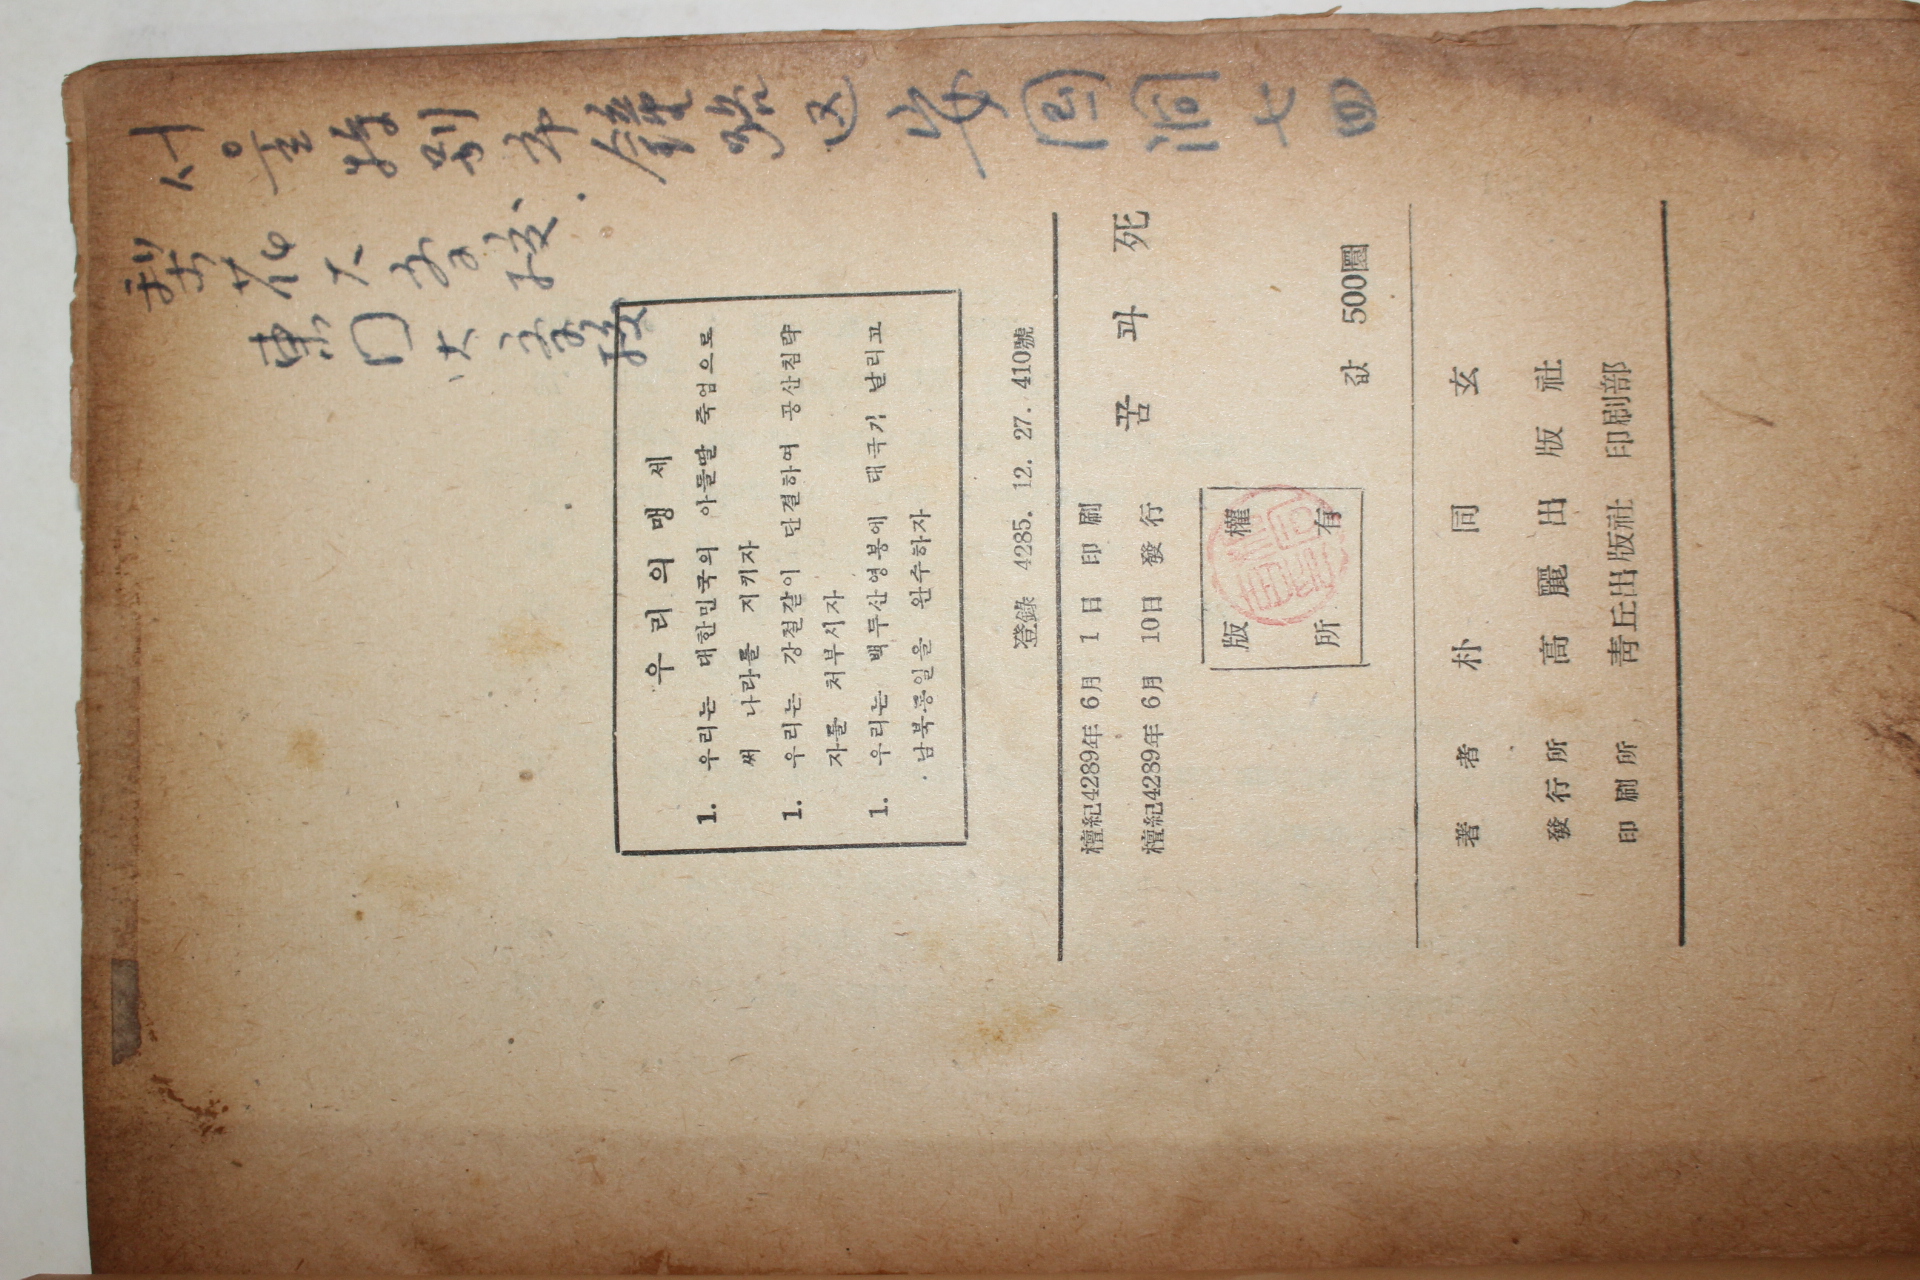 서울特別市鐘路区安国洞七四
梨花大学校
東門大学校
우리의 맹세
1. 우리는 대한민국의 아들딸 죽엄으로
써 나라를 지키자
1. 우리는 강철같이 단결하여 공산침략
자를 처부시자
1. 우리는 백두산영봉에 태극기 날리고
남북통일을 완수하자
登錄 4285. 12. 27. 410號
檀紀4289年 6月 1日 印刷
檀紀4289年 6月 10日 發行
꿈과 死
版權
所有
값 500圜
著者 朴同玄
發行所 高麗出版社
印刷所 靑丘出版社 印刷部